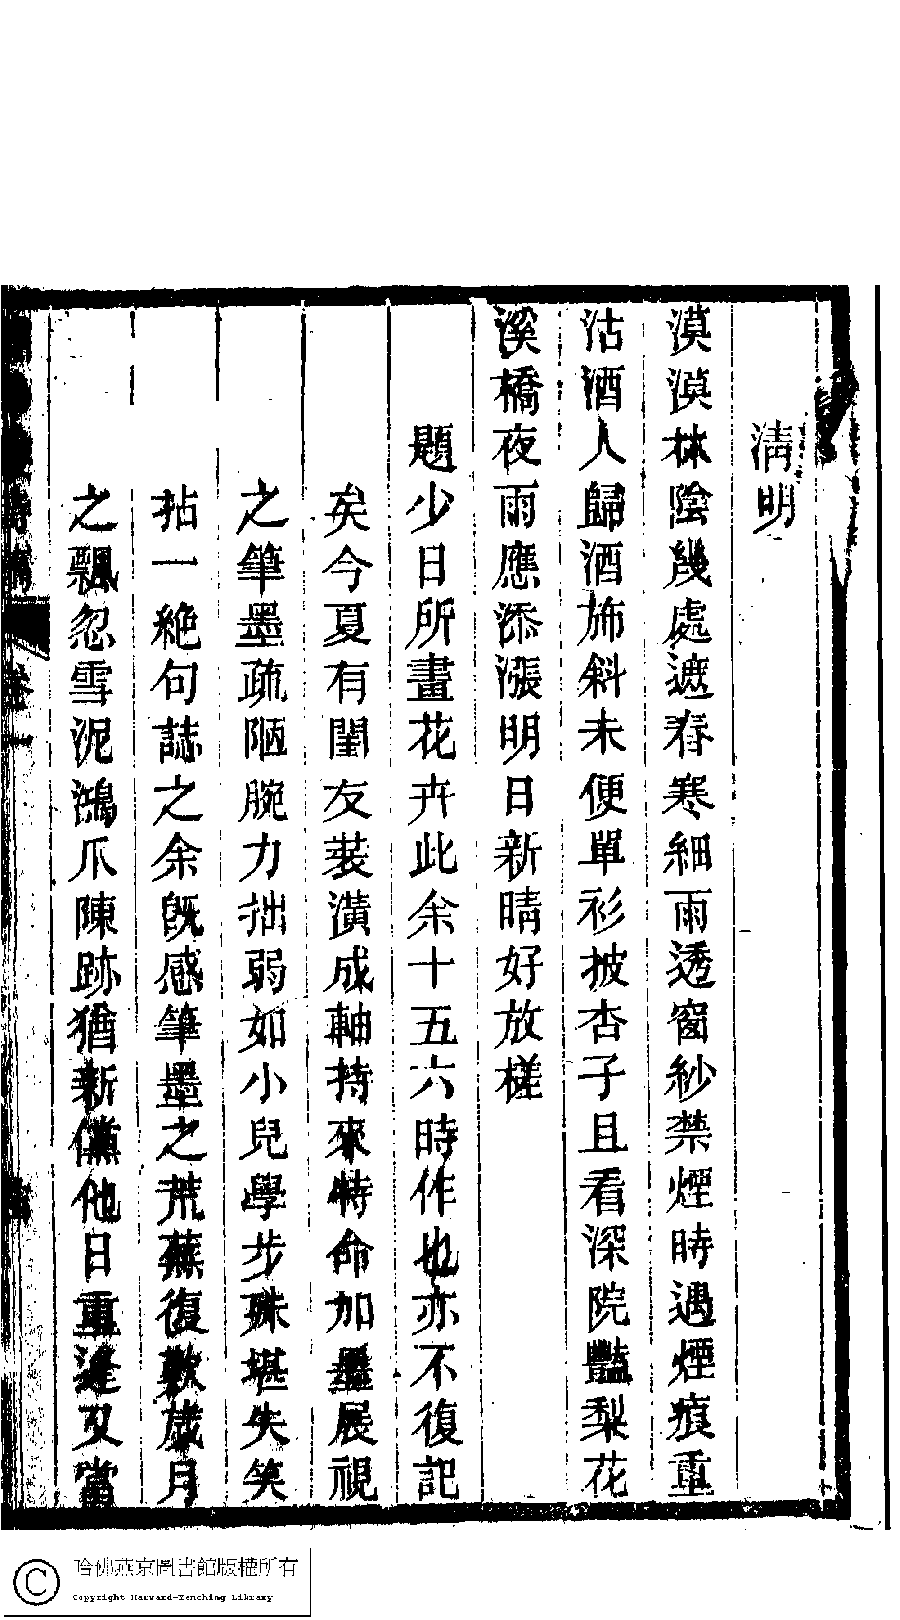 清明
漠漠林陰幾處遮春寒細雨透窗紗禁煙時遇煙痕重
沽酒人歸酒斾斜未便單衫披杏子且看深院豔梨花
溪橋夜雨應添漲明日新晴好放槎
題少日所畫花卉此余十五六時作也亦不復記
矣今夏有閨友裝潢成軸持來特命加墨展視
之筆墨疏陋腕力拙弱如小兒學步殊堪失笑
拈一絶句誌之余旣感筆墨之荒蕪復歎歲月
之飄忽雪泥鴻爪陳跡猶新儻他日重逢又當
卷一
哈佛燕京圖書館版權所有
Copyright Harvard-Yenching Library